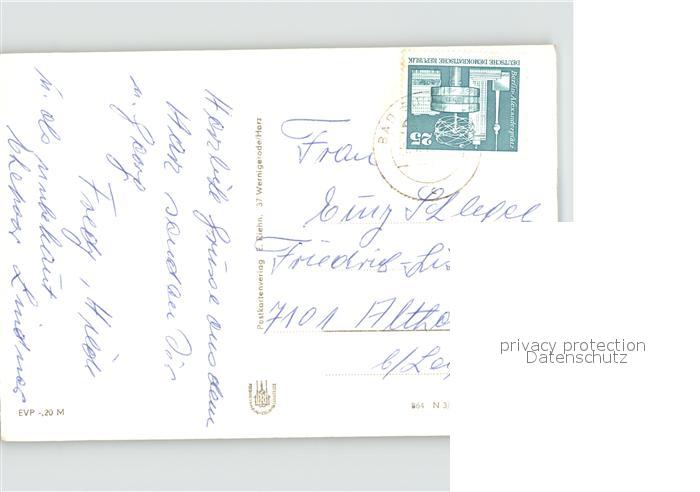 Herzliche Grüsse aus dem
Harz senden Dir
Fredy, Heidi
u. Georg
u. als unbekannt
Ehepaar Lindner
EVP -,20 M
Postkartenverlag E. Riehn, 37 Wernigerode/Harz
DEUTSCHE DEMOKRATISCHE REPUBLIK
Berlin-Alexanderplatz
25
BAD
Frau
Schlegel
Friedrich-Lis
7101 Altho
b/Lei
B64 N 3/
privacy protection
Datenschutz